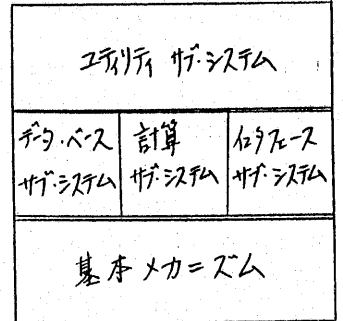 ユティリティ サブ・システム
データ・ベース
サブ・システム
計算
サブ・システム
インタフェース
サブ・システム
基本メカニズム